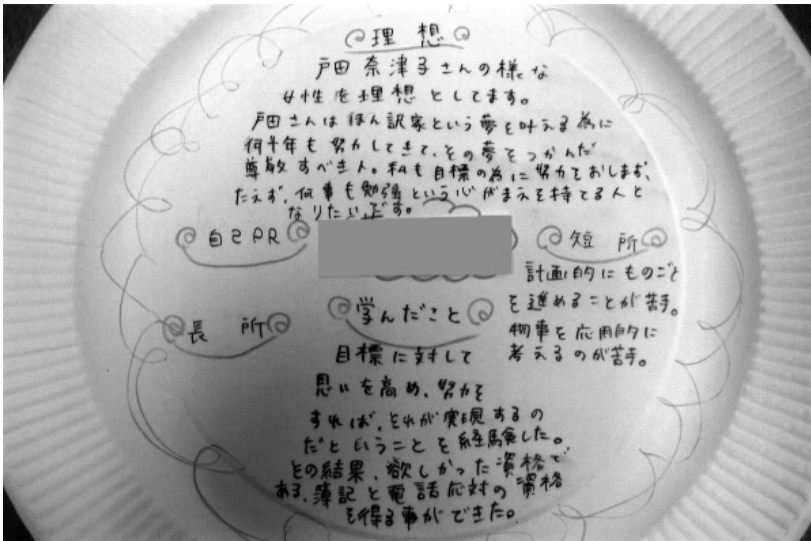 理想
戸田奈津子さんの様な
女性を理想としてます。
戸田さんはほん訳家という夢を叶える為に
何十年も努力してきて、その夢をつかんだ
尊敬すべき人。私も目標の為に努力をおしまず、
たえず、何事も勉強という心がまえを持てる人と
なりたいです。
自己PR
短所
計画的にものごと
を進めることが苦手。
物事を応用的に
考えるのが苦手。
長所
学んだこと
目標に対して
思いを高め、努力を
すれば、それが実現するの
だということを経験した。
その結果、欲しかった資格で
ある、簿記と電話応対の資格
を得る事ができた。